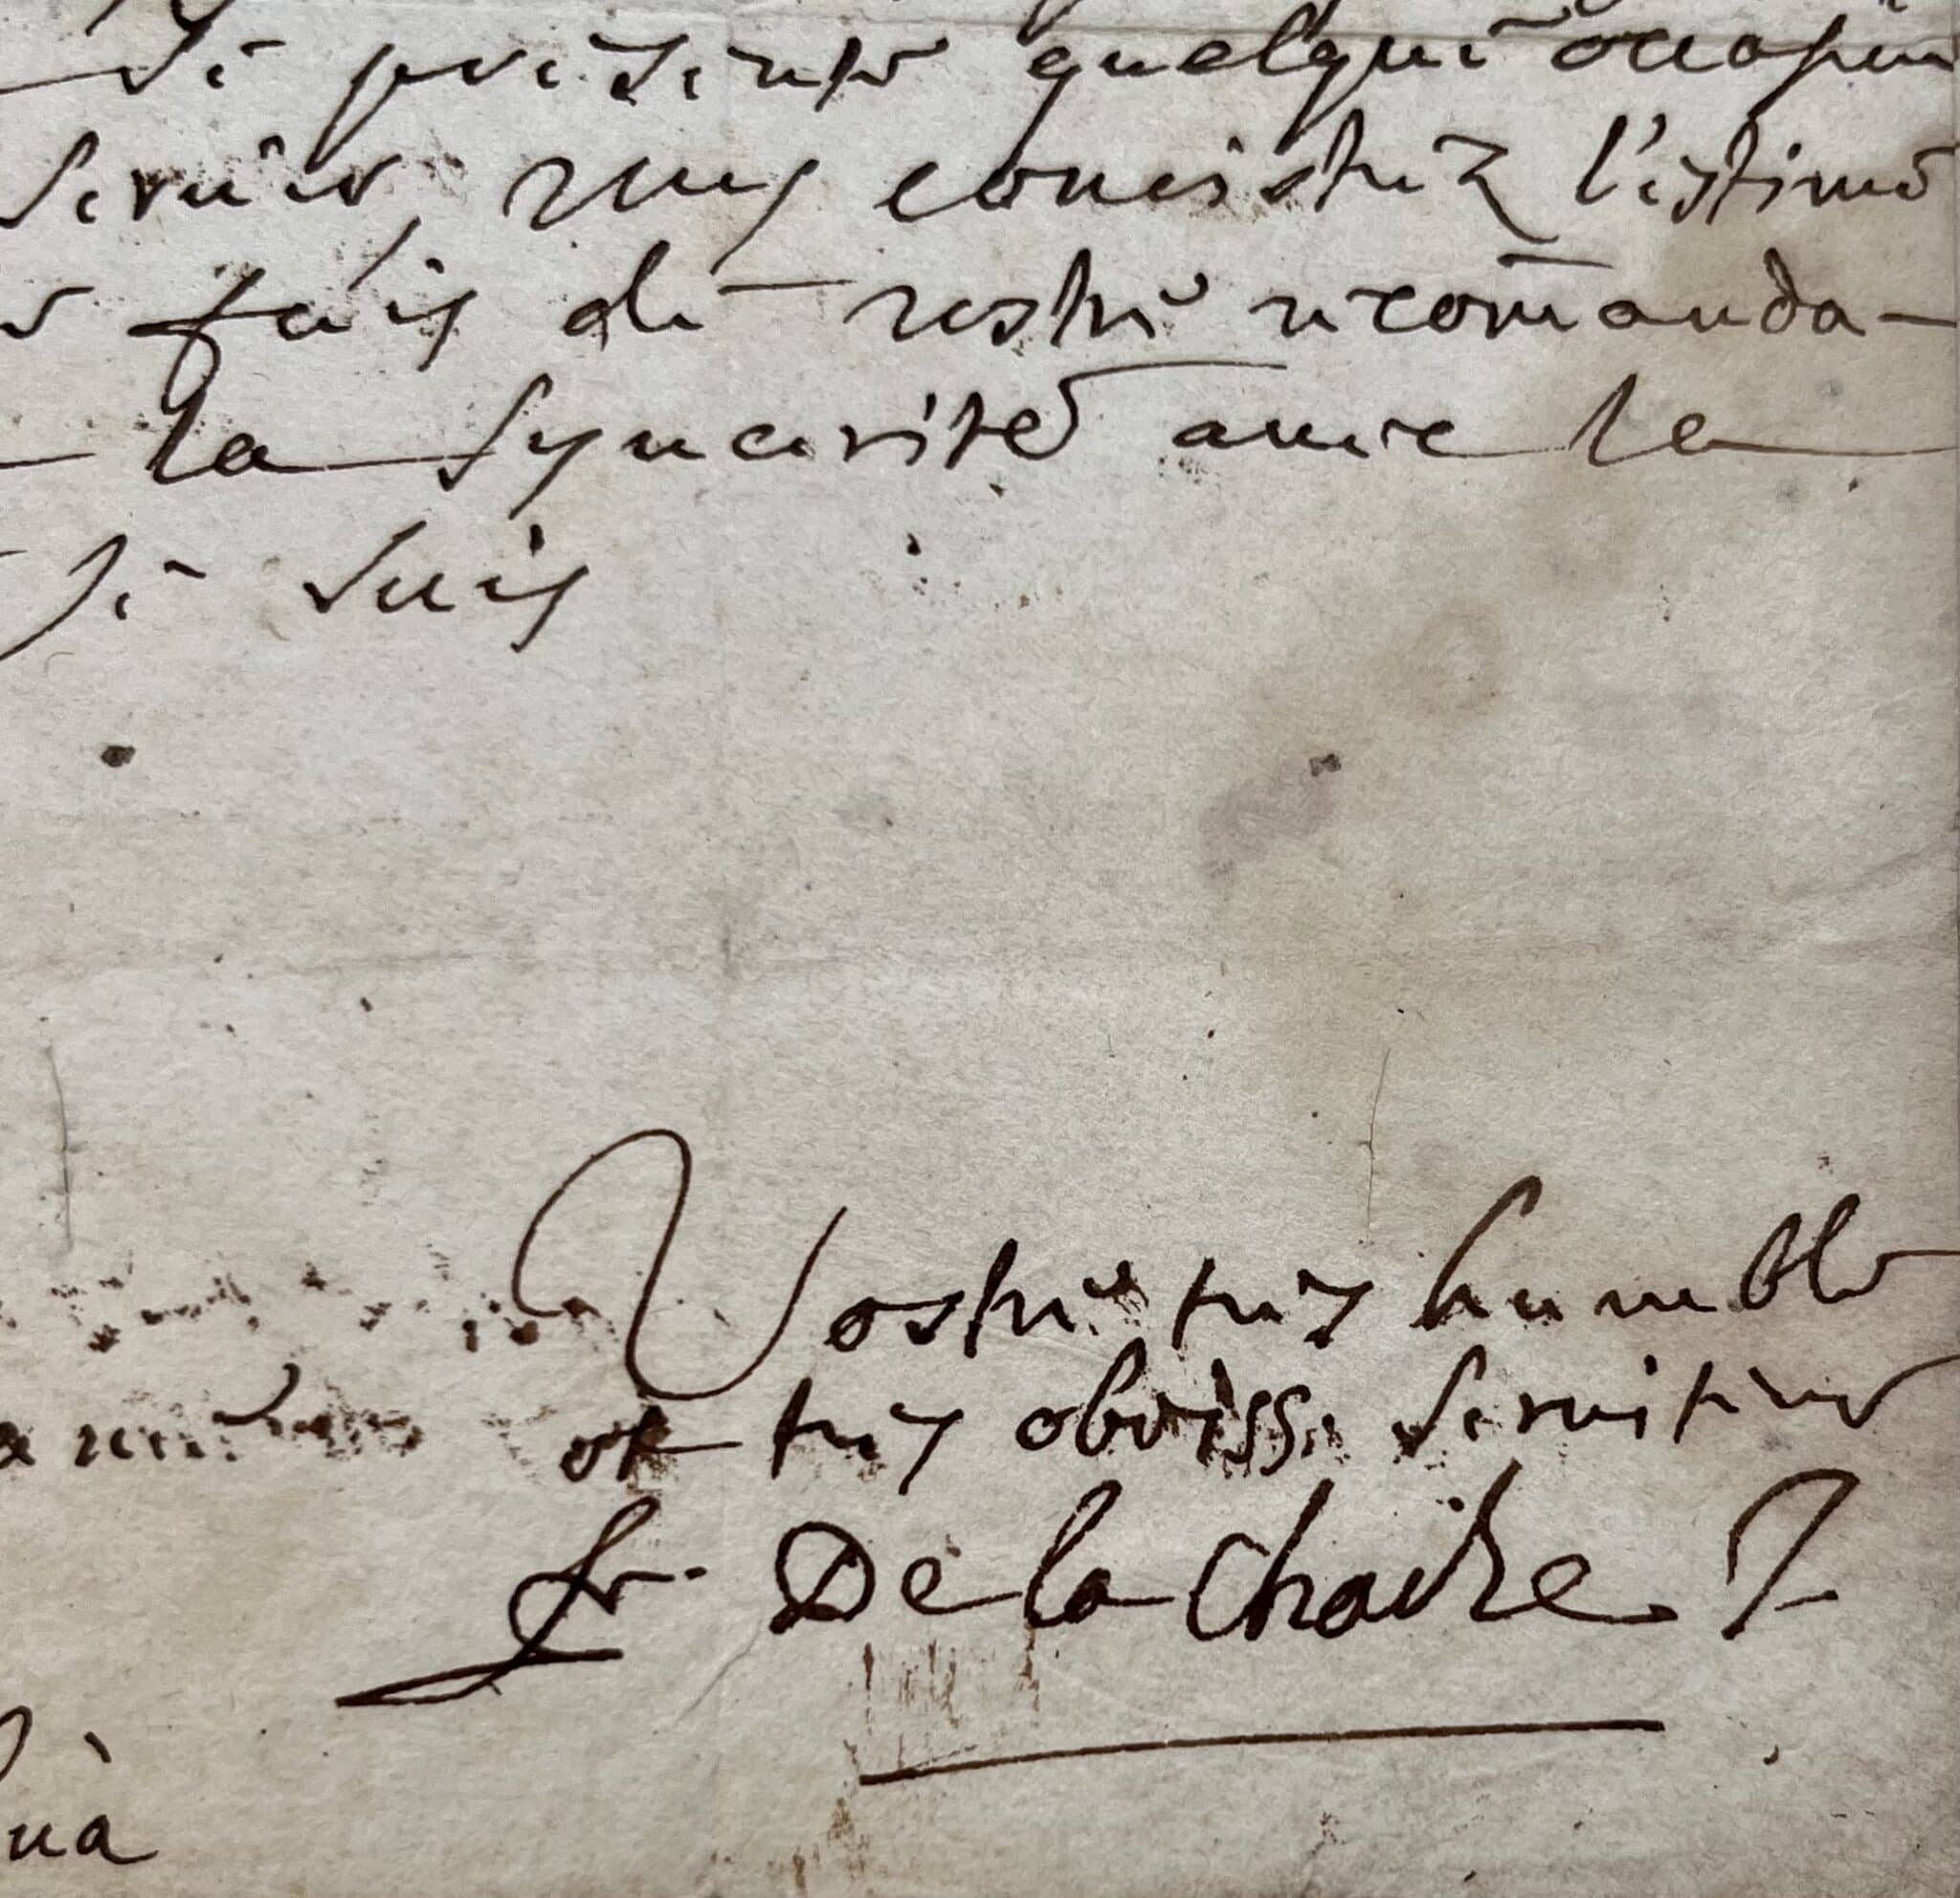 se presente quelque occasion
servir, vous connoistrez l'estime
fais de vostre recomanda-
la syncerité avec la
je suis
Vostre tres humble
et tres obeiss. serviteur
fr. De la Chaire